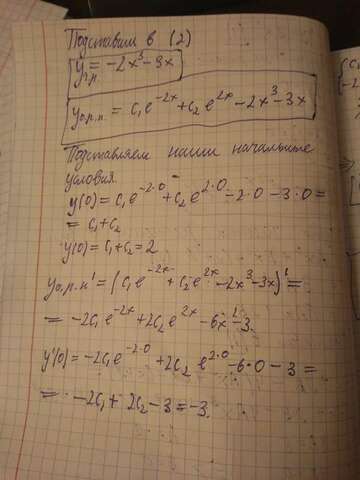 Подставим в (2)
y г.н = -2x³ - 3x
y о.р.н. = c₁e^{-2x} + c₂e^{2x} - 2x³ - 3x
Подставляем наши начальные
условия
y(0) = c₁e^{-2·0} + c₂e^{2·0} - 2·0 - 3·0 =
= c₁ + c₂
y(0) = c₁ + c₂ = 2
y о.р.н' = (c₁e^{-2x} + c₂e^{2x} - 2x³ - 3x)' =
= -2c₁e^{-2x} + 2c₂e^{2x} - 6x² - 3.
y'(0) = -2c₁e^{-2·0} + 2c₂e^{2·0} - 6·0 - 3 =
= -2c₁ + 2c₂ - 3 = -3.